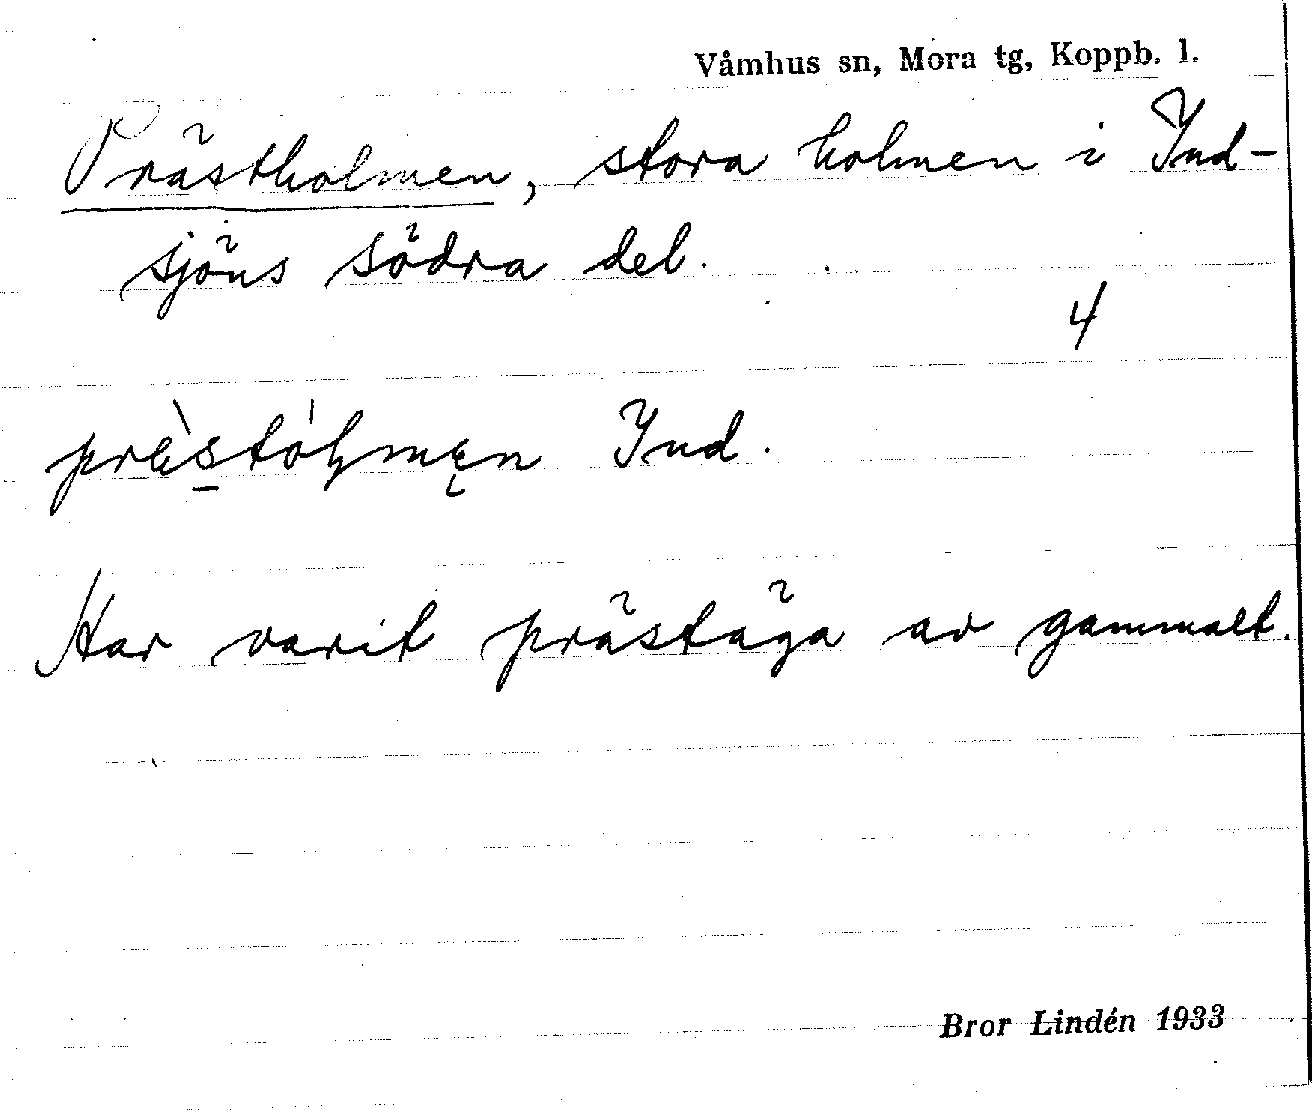 Våmhus sn, Mora tg, Koppb. l.
Prästholmen, stora holmen i Ind-
sjöns södra del.
4
Ind.
Har varit prästäga av gammalt.
Bror Lindén 1933